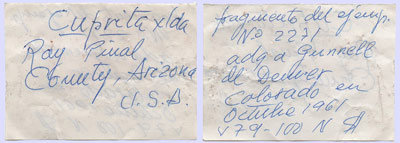 Cuprita xlda
Ray Pinal
County, Arizona
U.S.A.
fragmento del ejemp.
Nº 2271
adq a Gunnell
de Denver
Colorado en
Octubre 1961
v 79-100 N